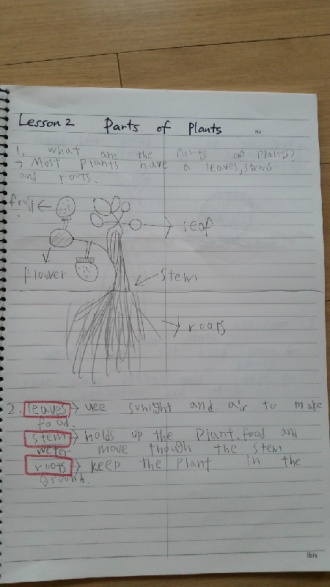 Lesson 2 Parts of Plants
1. what are the Parts of Plants?
→ Most Plants have a leaves, stems
and roots.
fruit
leaf
flower
stem
roots
2. leaves → use sunight and air to make
food.
stem → holds up the Plant. food and
water move though the stem
roots → keep the Plant in the
ground.